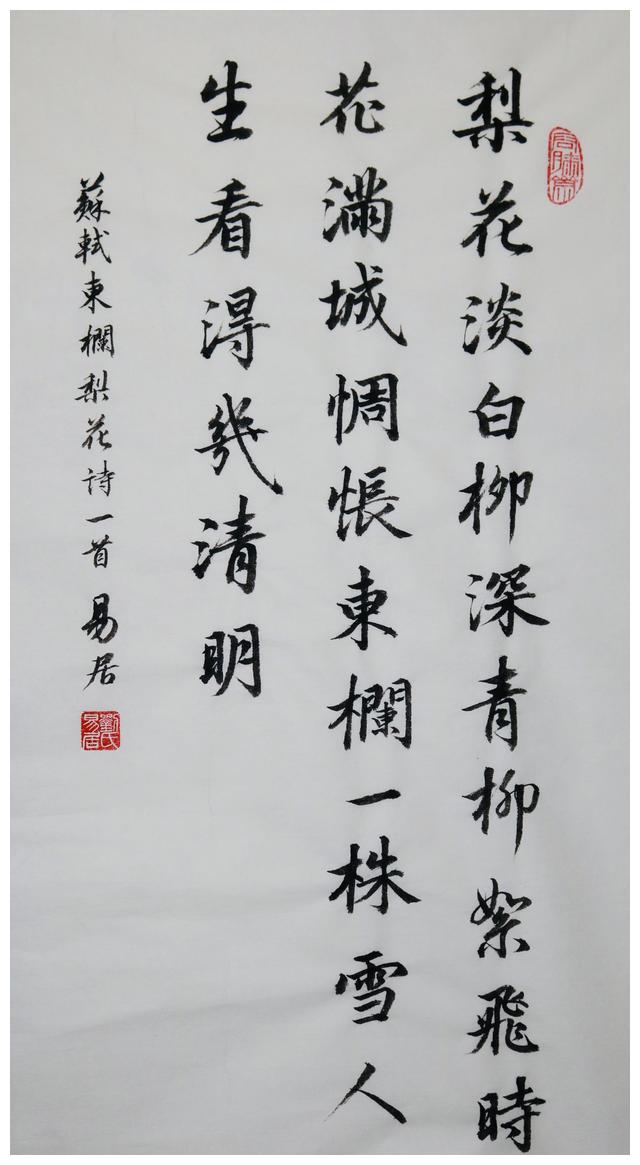 梨花淡白柳深青柳絮飛時
花滿城惆悵東欄一株雪人
生看得幾清明
蘇軾東欄梨花詩一首 易居
劉氏易居